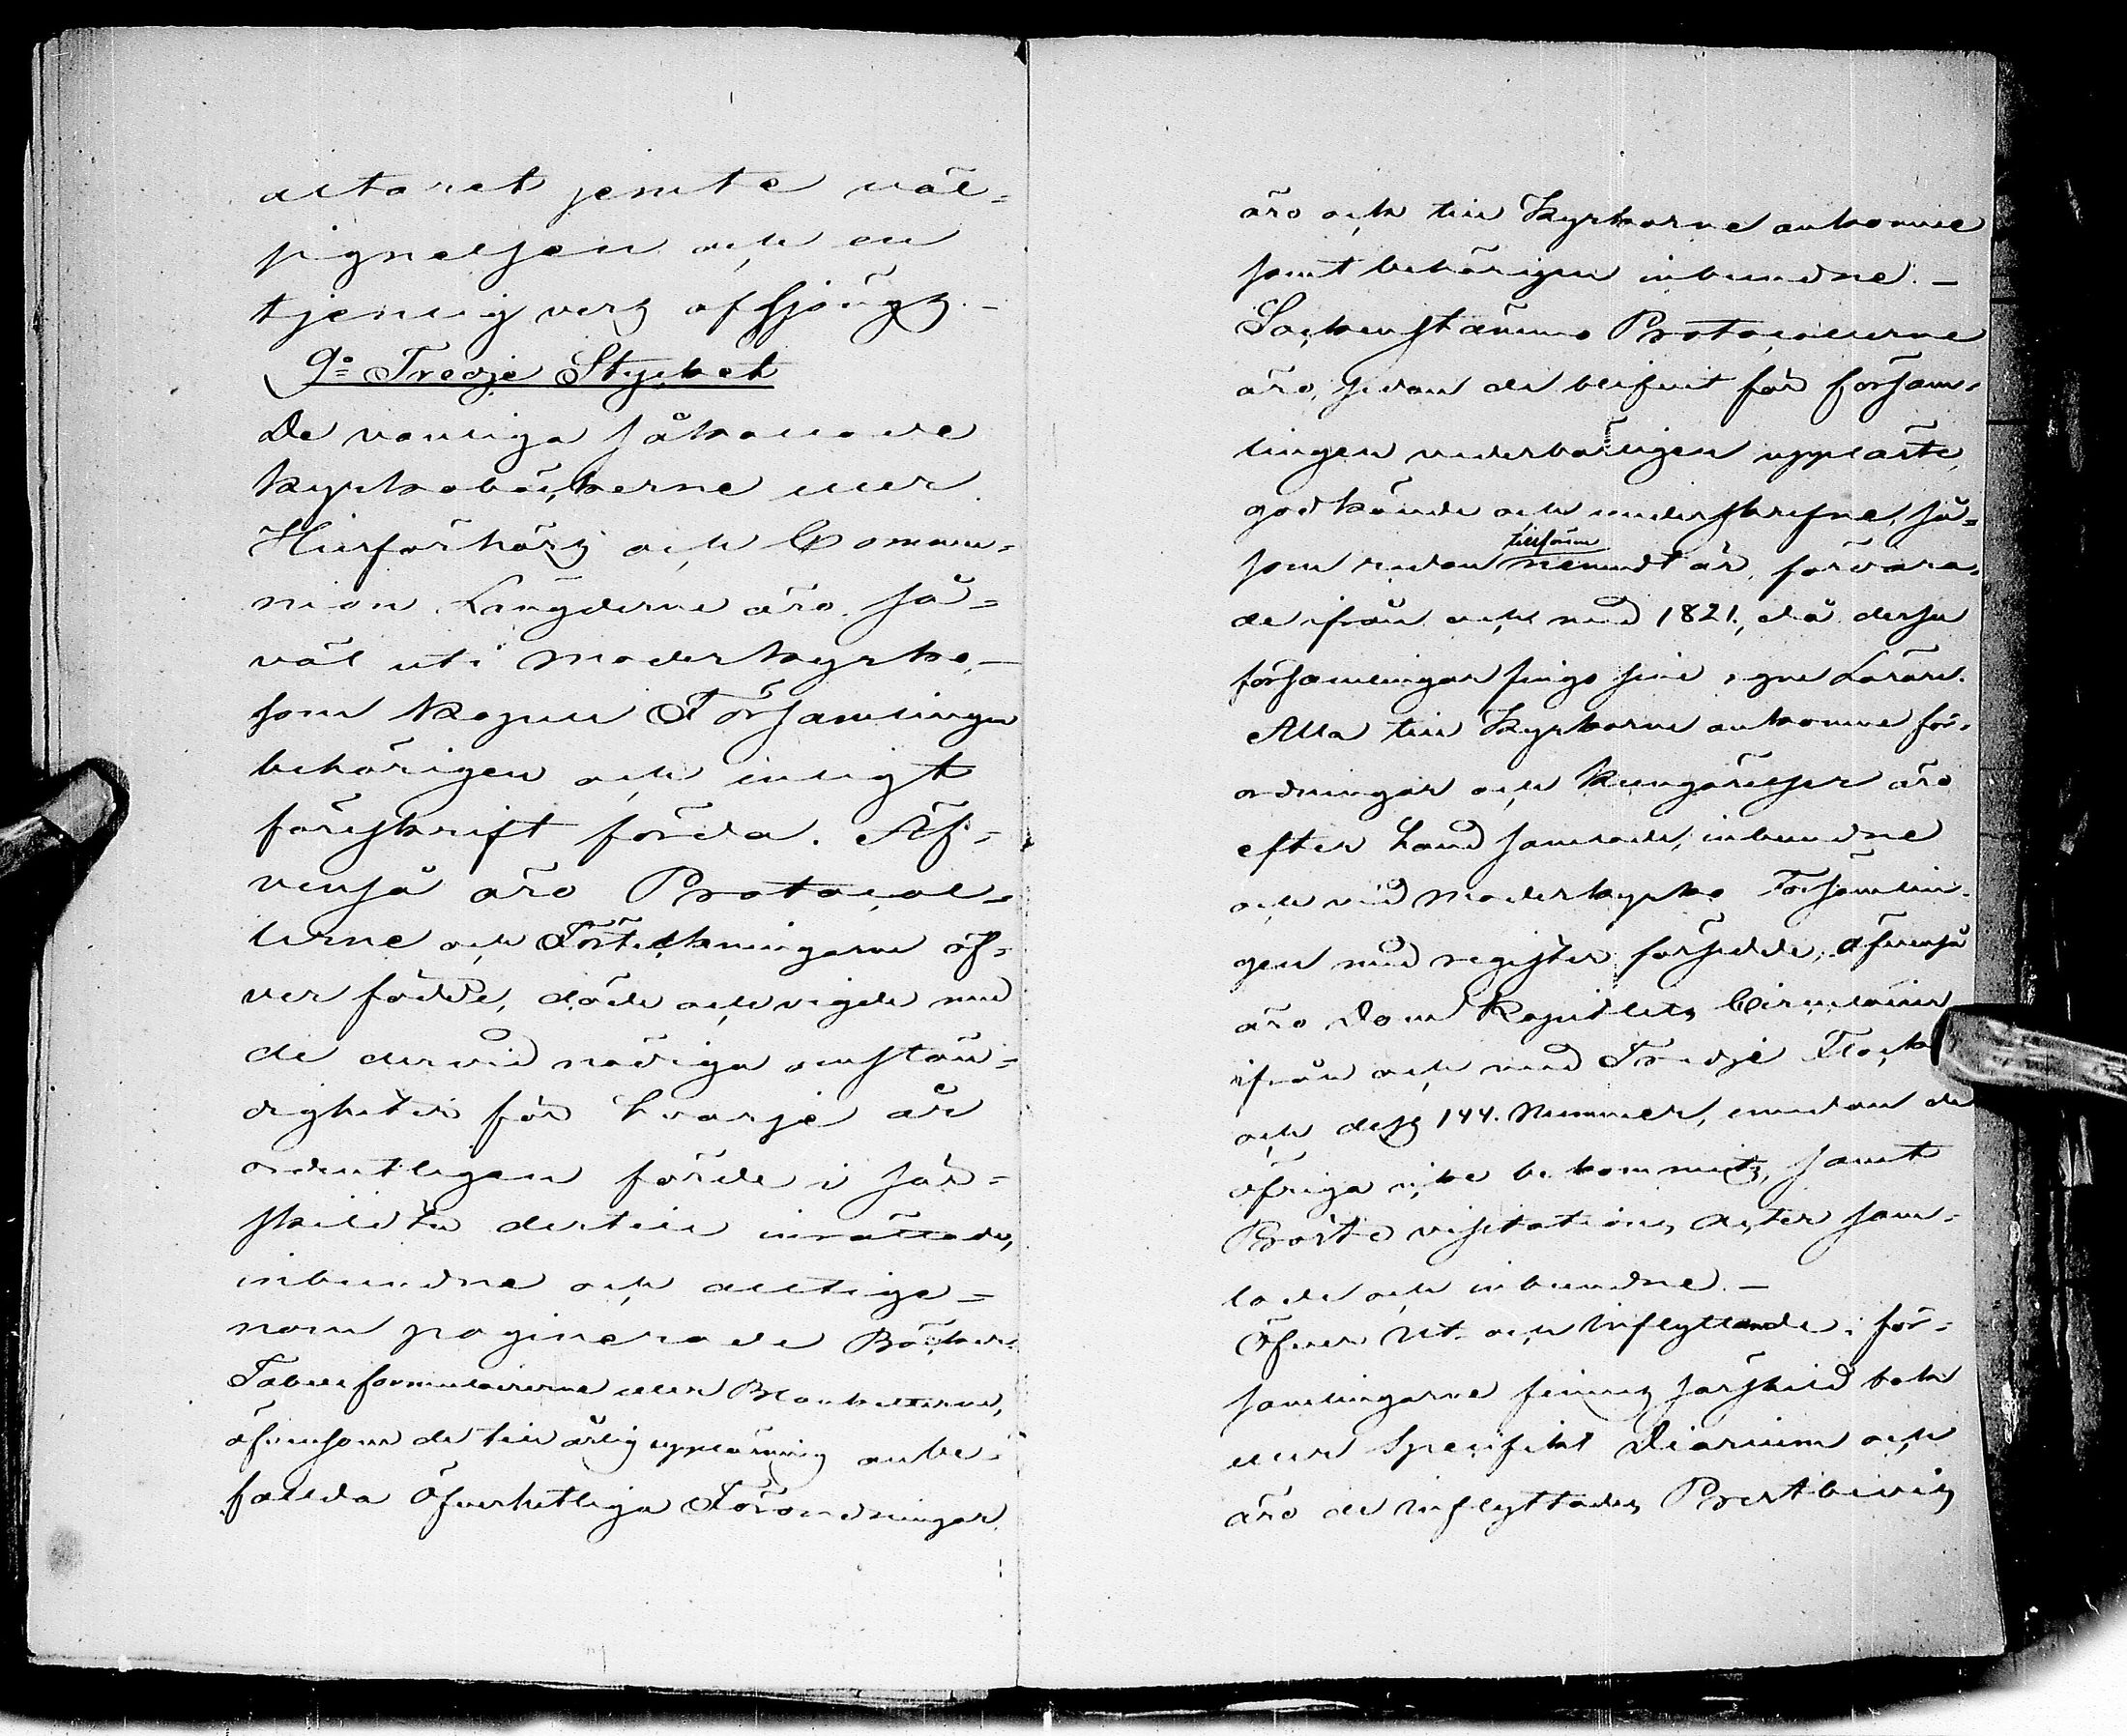 altaret jemte väl-
signelsen och en
tjenlig vers afsjöngs. -
9o Tredje Stycket
De vanliga så kallade
kyrkoböckerne eller
Husförhörs och Commu-
nion Längderne äro så-
väl uti Moderkyrko-
som Kapell Församlingen
behörigen och enligt
föreskrift förda. Äf-
venså äro Protocol-
lerne och Förteckningarne öf-
ver födde, döde och vigde med
de dervid nödiga omstän-
digheter för hvarje år
ordentligen förde i sär-
skildta dertill inrättade,
inbundne och alltige-
nom paginerade Böcker.
Tabellformulairerne eller Blanketterne,
äfvensom de till årlig uppläsning anbe-
fallda Öfverhetliga Förordningar
äro och till Kyrkorne ankomne
samt behörigen inbundne. -
Sockenstämmo Protocollerne
äro, sedan de blifvit för försam-
lingen vederbörligen uppläste,
godkände och underskrefne, så-
som redan tillförene nemndt är, förvara-
de ifrån och med 1821, då dessa
församlingar fingo sine egne Lärare.
Alla till Kyrkorne ankomne för-
ordningar och Kungörelser äro
efter hand samlade, inbundne
och vid Moderkyrko Församlin-
gen med register försedde; äfvenså
äro Dom Kapitlets Circulairer
ifrån och med Tredje Flock
och dess 144. Nummer, emedan de
öfriga icke bekommits, samt
Proste visitations Acter sam-
lade och inbundne. -
Öfver Ut- och Inflyttande i för-
samlingarne finnes särskild bok
eller Specifikt Diarium och
äro de Inflyttades Prestbevis